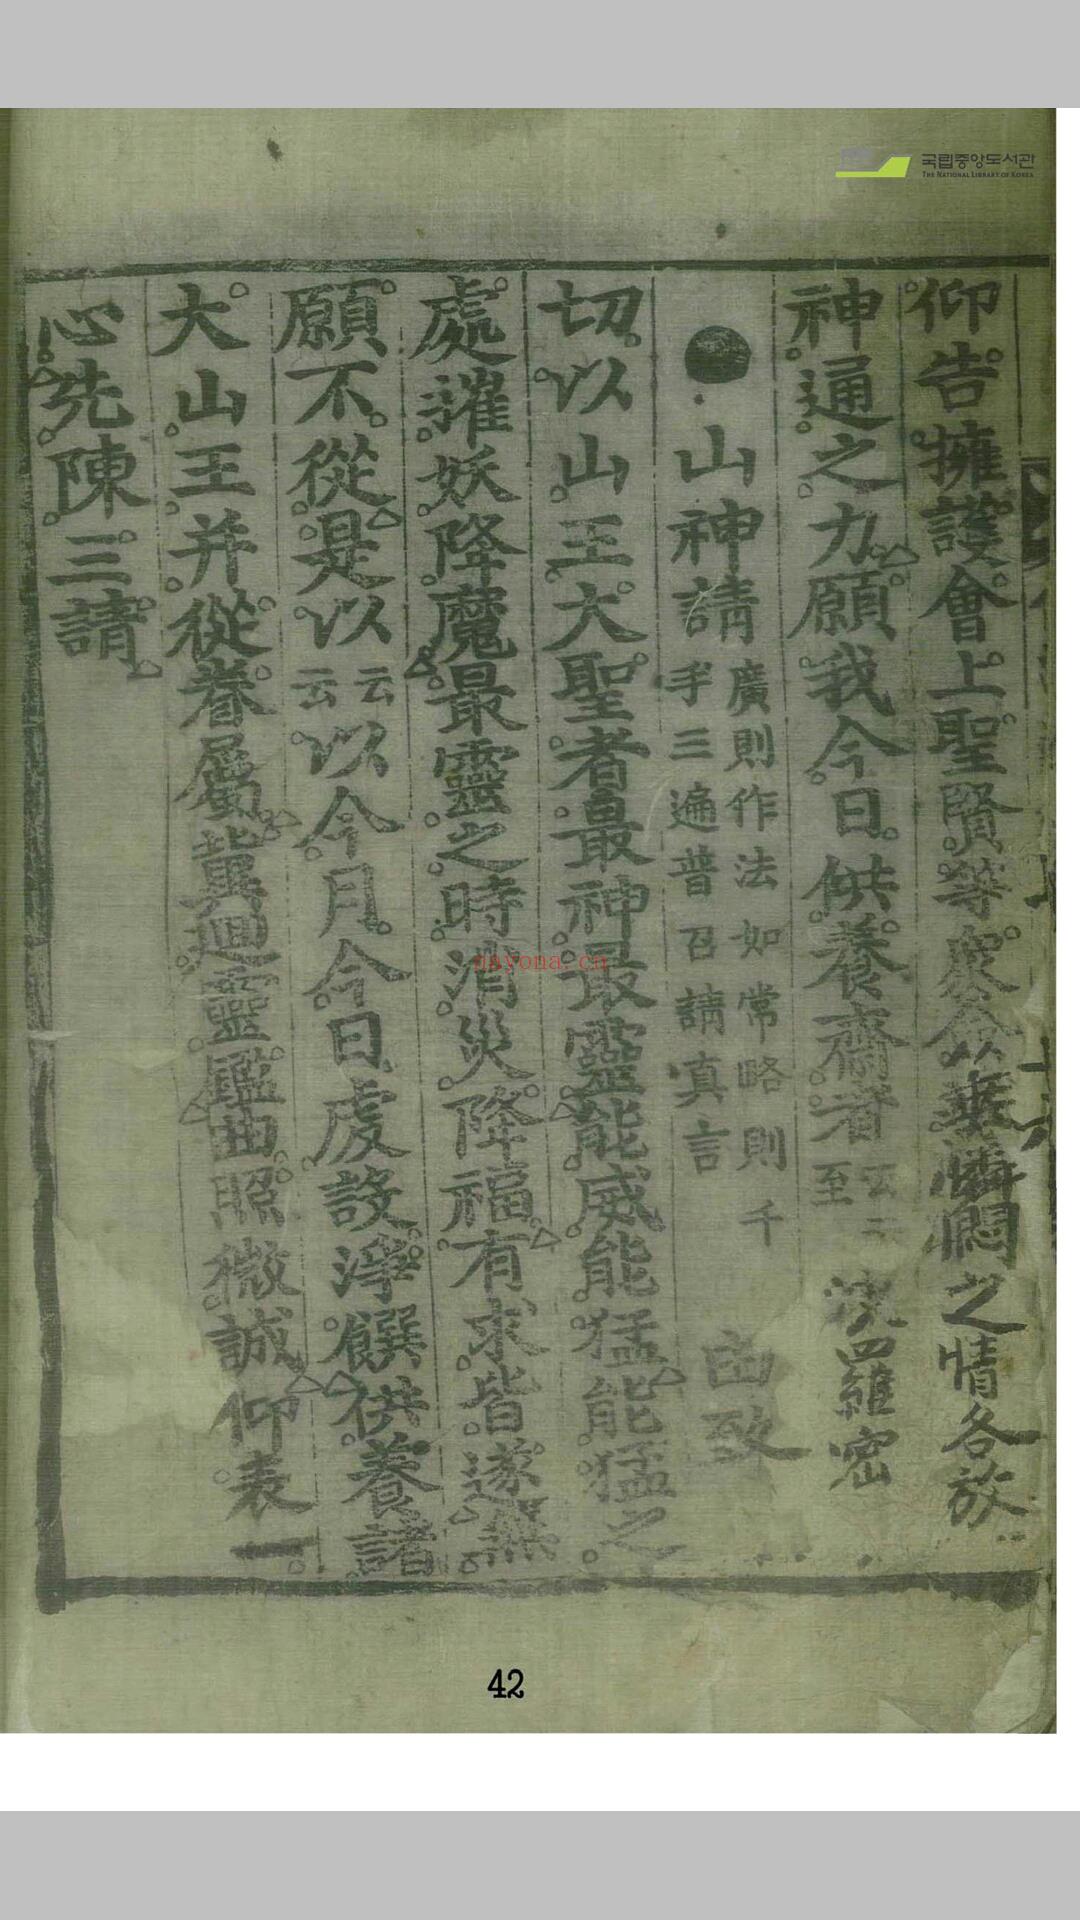 국립중앙도서관
THE NATIONAL LIBRARY OF KOREA
仰告擁護會上聖賢等 垂憐憫之情各放
神通之力願我今日供養齋者 云云 至 波羅密
●山神請 廣則作法如常略則千
手三遍普召請眞言 由致
切以山王大聖者最神最靈能威能猛能猛之
處摧妖降魔最靈之時消災降福有求皆遂無
願不從是以云云以今月今日處設淨饌供養諸
大山王幷從眷屬冀廻靈鑑曲照微誠仰表一
心先陳三請
nayona.cn
42